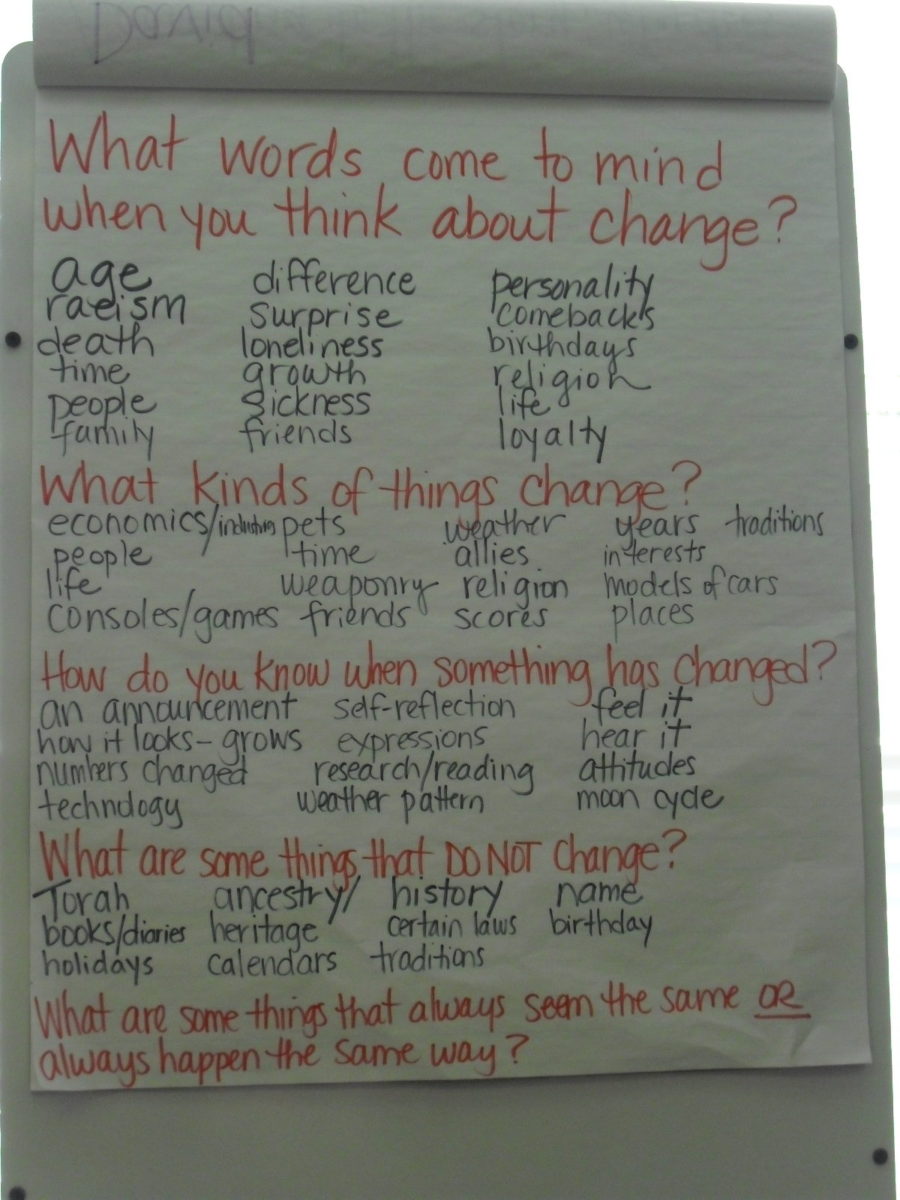 David
What words come to mind
when you think about change?
age difference personality
racism surprise comebacks
death loneliness birthdays
time growth religion
people sickness life
family friends loyalty
What kinds of things change?
economics/ pets weather years traditions
people time allies interests
life weaponry religion models of cars
consoles/games friends scores places
How do you know when something has changed?
an announcement self-reflection feel it
how it looks- grows expressions hear it
numbers changed research/reading attitudes
technology weather pattern moon cycle
What are some things that DO NOT change?
Torah ancestry/ history name
books/diaries heritage certain laws birthday
holidays calendars traditions
What are some things that always seem the same OR
always happen the same way?